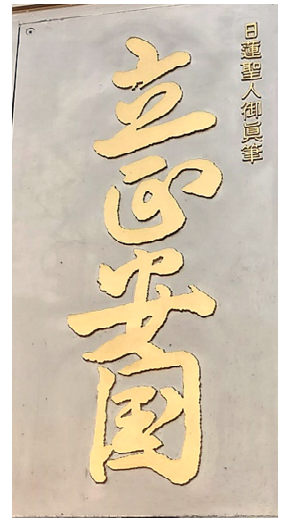 日蓮聖人御眞筆
立正安国